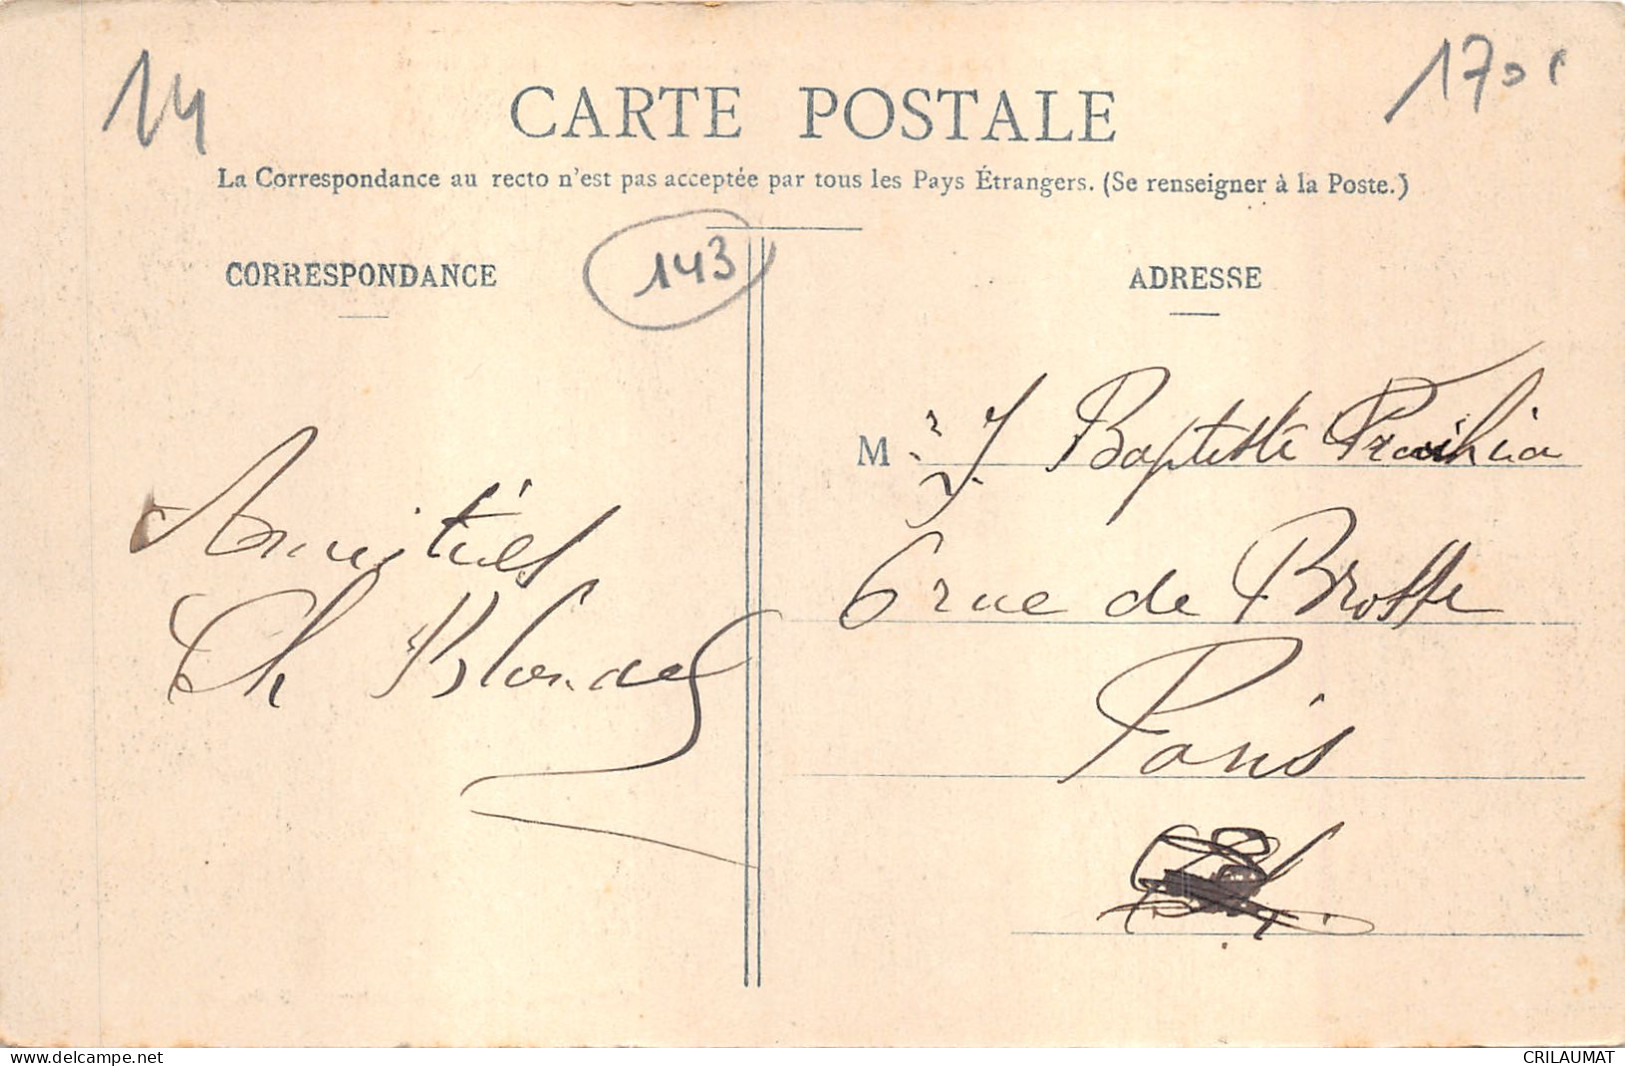 14
170
CARTE POSTALE
La Correspondance au recto n'est pas acceptée par tous les Pays Étrangers. (Se renseigner à la Poste.)
143
CORRESPONDANCE
ADRESSE
Amitiés
Ch Blondel
M r J Baptiste
6 rue de Brosse
Paris
www.delcampe.net
CRILAUMAT